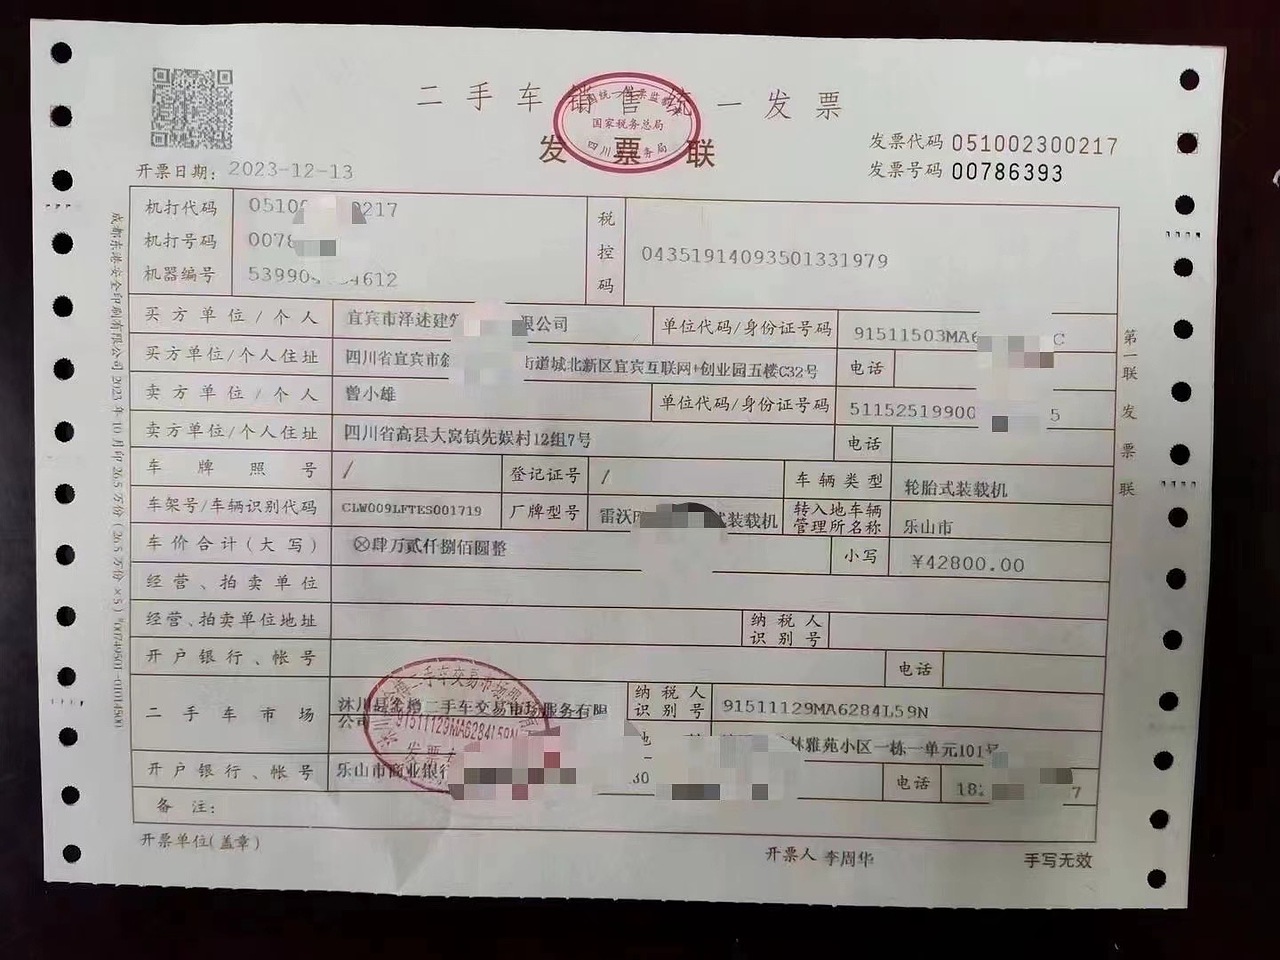 二手车销售统一发票
国家税务总局
发票联
发票代码 051002300217
发票号码 00786393
开票日期: 2023-12-13
机打代码 0510 0217
机打号码 0078
机器编号 539904 4612
税控码 04351914093501331979
买方单位/个人 宜宾市泽述建 限公司 单位代码/身份证号码 91511503MA6 C
买方单位/个人住址 四川省宜宾市叙 街道城北新区宜宾互联网+创业园五楼C32号 电话
卖方单位/个人 曾小雄 单位代码/身份证号码 51152519900 5
卖方单位/个人住址 四川省高县大窝镇先娱村12组7号 电话
车牌照号 / 登记证号 / 车辆类型 轮胎式装载机
车架号/车辆识别代码 CLW009LFTES001719 厂牌型号 雷沃 式装载机 转入地车辆管理所名称 乐山市
车价合计(大写) ⊗肆万贰仟捌佰圆整 小写 ¥42800.00
经营、拍卖单位
经营、拍卖单位地址 纳税人识别号
开户银行、帐号 电话
二手车市场 沐川县 二手车交易市场服务有限公司 纳税人识别号 91511129MA6284L59N
林雅苑小区一栋一单元101号
开户银行、帐号 乐山市商业银行 30 电话 18 7
备注:
开票单位(盖章) 开票人 李周华 手写无效
第一联 发票联
91511129MA6284L59N